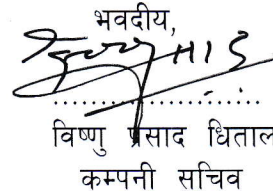 भवदीय,
विष्णु प्रसाद धिताल
कम्पनी सचिव